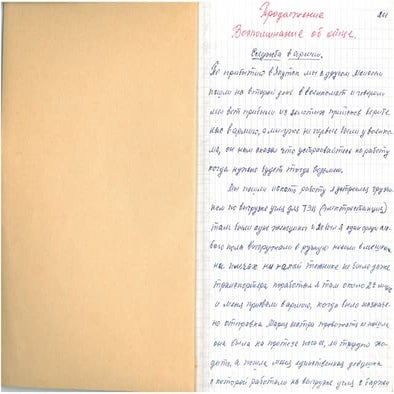 Продолжение
Воспоминание об отце.
Служба в армии.
По прибытию в Якутск мы с другом
пошли на второй день в военкомат и говорим
мы вот прибыли из золотых приисков берите
нас в армию, а мы уже не первые были у военко
ма, он нам сказал что устраивайтесь на работу
когда нужно будет тогда возьмем.
Мы пошли искать работу я устроился грузчи
ком по выгрузке угля для ТЭЦ (электростанция)
там были одни женщины и я один
пола выгружали в ручную носили
на плечах ни какой техники не было даже
транспортера поработал я там около
и меня призвали в армию, когда было назначе
но отправка провожать не пошла
она была на протезе ноги, ей трудно хо
дить, а пошла меня единственная девушка
с которой работали на выгрузке угля с баржи